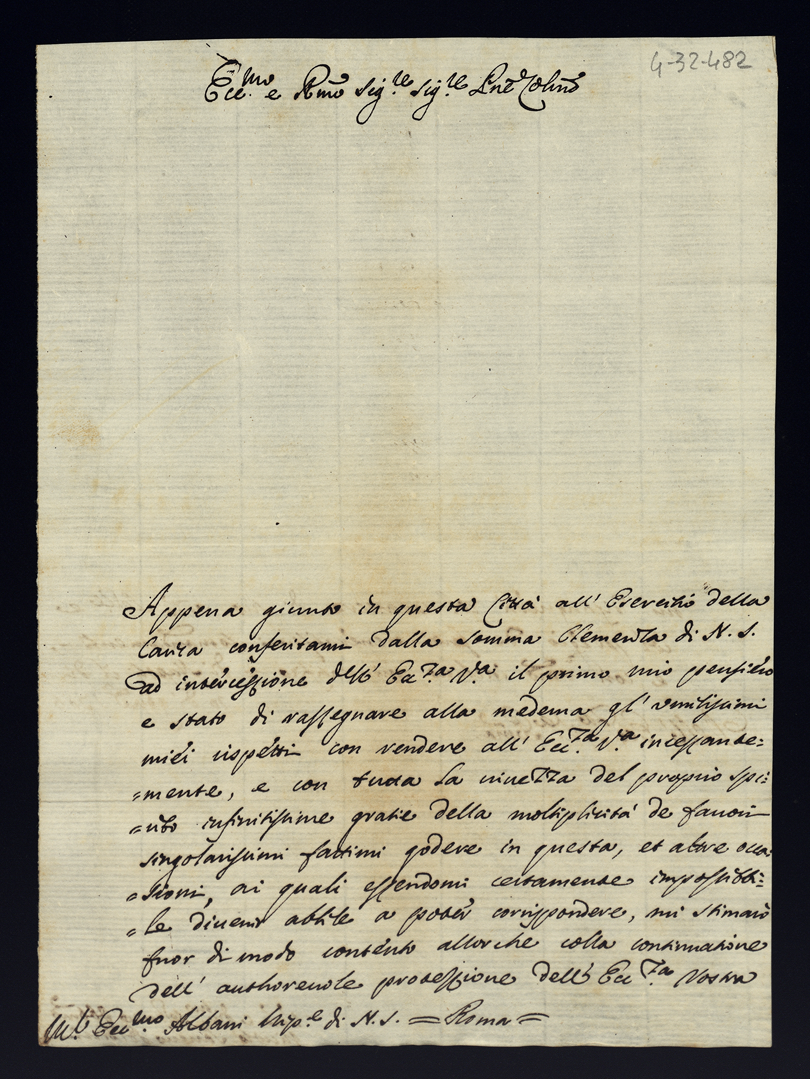 4-32-482
Ecc.mo e Rmo Sig.re Sig.re Pne Colmo
Appena giunto in questa Città all' Esercitio della
Carica conferitami dalla somma Clemenza di N. S.
ad intercessione dell' Ecc.za V.a il primo mio pensiero
e stato di rassegnare alla medema gl' umilissimi
miei rispetti con rendere all' Ecc.za V.a incessante=
=mente, e con tutta la viuezza del proprio spi=
=rito infinitissime gratie della moltiplicità de fauori
singolarissimi fattimi godere in questa, et altre occa=
=sioni, ai quali essendomi certamente impossibi=
=le diuenir abile a poter corrispondere, mi stimarò
fuor di modo contento allorche colla continuatione
dell' authoreuole protessione dell' Ecc.za Vostra
Ecc.mo Albani Nip.e di N. S. = Roma =